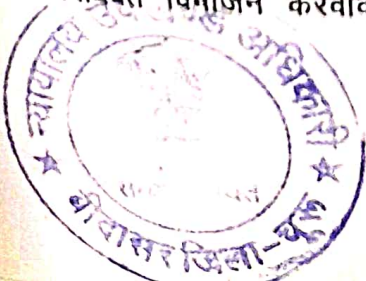 विभाजन करवाव
न्यायालय उपखण्ड अधिकारी
बीदासर जिला-चूरू